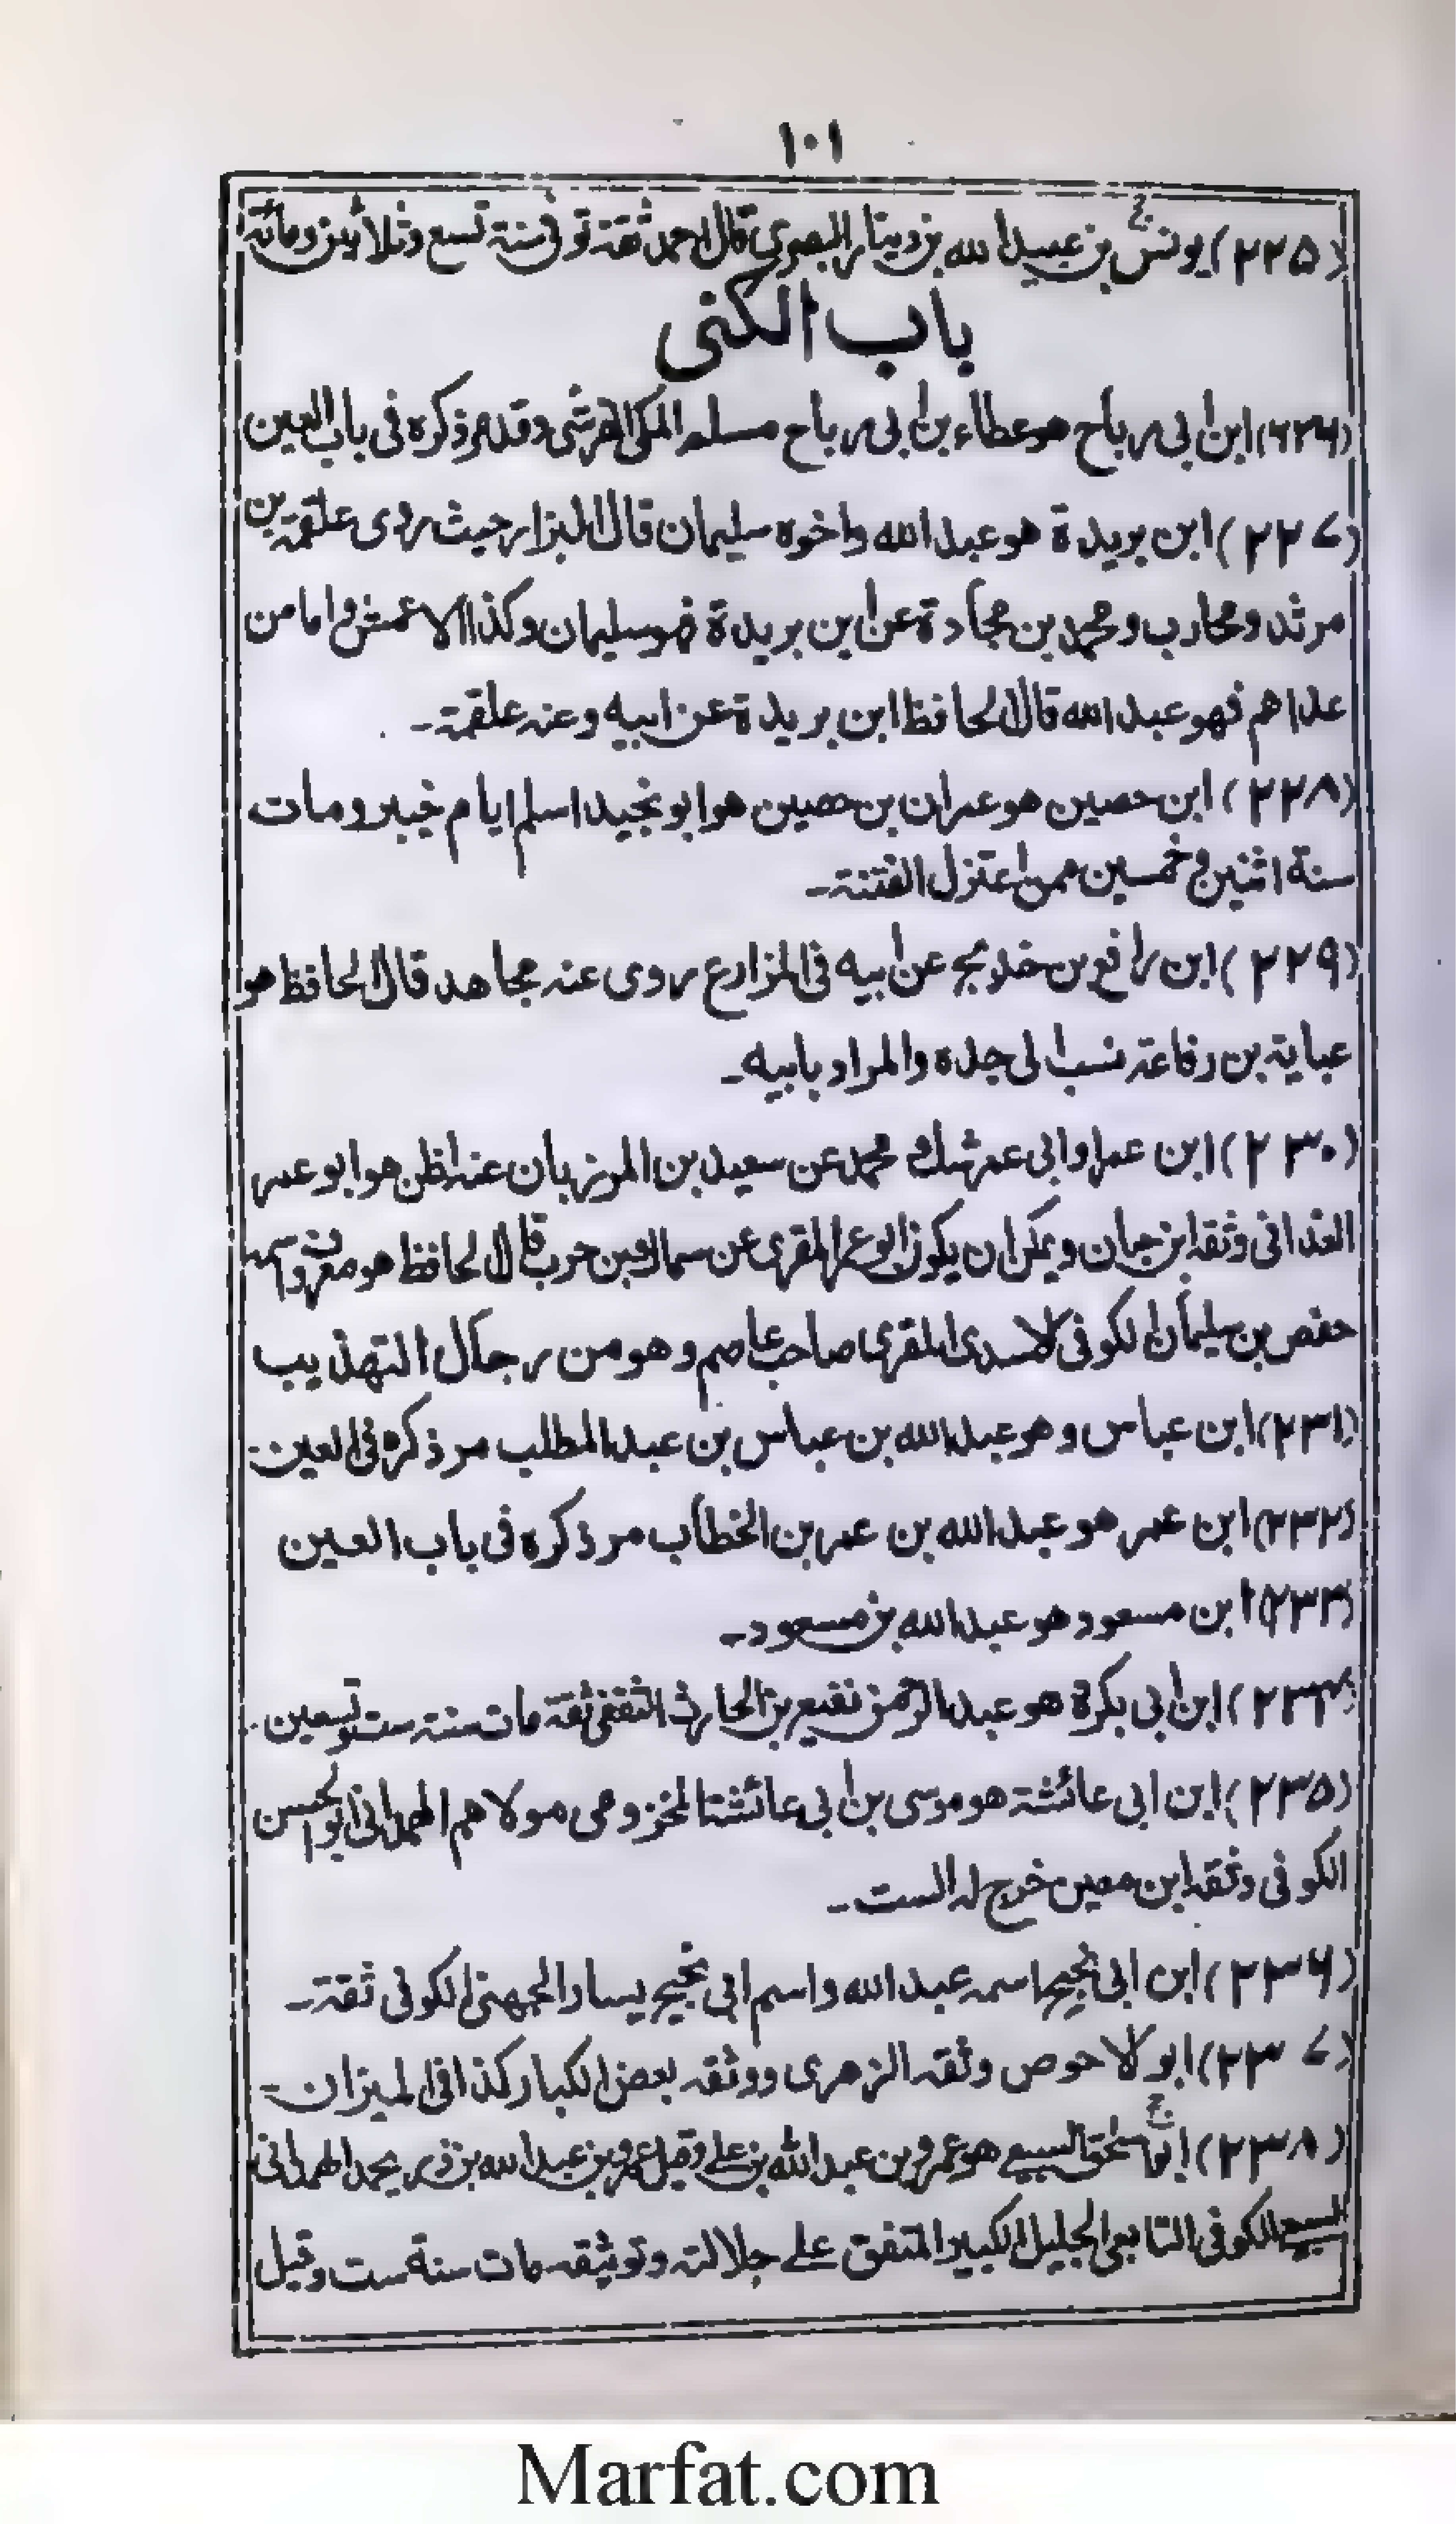 ١٠١
(٢٢٥) يونس بن عبيد الله بن دينار البصرى قال احمد ثقة توفى سنة تسع وثلاثين ومائة
باب الكنى
(٢٢٦) ابن ابى رباح هو عطاء بن ابى رباح مسلم المكى القرشى وقد مر ذكره فى باب العين
(٢٢٧) ابن بريدة هو عبد الله واخوه سليمان قال البزار حيث روى علقمة بن
مرثد ومحارب ومحمد بن حجادة عن ابن بريدة فهو سليمان وكذا الاعمش واما من
عداهم فهو عبد الله قال الحافظ ابن بريدة عن ابيه وعنه علقمة۔
(٢٢٨) ابن حصين هو عمران بن حصين هو ابو نجيد اسلم ايام خيبر ومات
سنة اثنين وخمسين ممن اعتزل الفتنة۔
(٢٢٩) ابن رافع بن خديج عن ابيه فى المزارع روى عنه مجاهد قال الحافظ هو
عباية بن رفاعة نسب الى جده والمراد بابيه۔
(٢٣٠) ابن عمر او ابى عمر محمد عن سعيد بن المرزبان عنه اظن هو ابو عمر
الغدانى وثقه ابن حبان ويمكن ان يكون ابو عمر المقرى عن سماك بن حرب قال الحافظ هو معروف اسمه
حفص بن سليمان الكوفى الاسدى المقرى صاحب عاصم وهو من رجال التهذيب
(٢٣١) ابن عباس وهو عبد الله بن عباس بن عبد المطلب مر ذكره فى العين۔
(٢٣٢) ابن عمر هو عبد الله بن عمر بن الخطاب مر ذكره فى باب العين
(٢٣٣) ابن مسعود هو عبد الله بن مسعود۔
(٢٣٤) ابن ابى بكرة هو عبد الرحمن نفيع بن الحارث الثقفى ثقة مات سنة ست وتسعين۔
(٢٣٥) ابن ابى عائشة هو موسى بن ابى عائشة المخزومى مولاهم الهمدانى ابو الحسن
الكوفى وثقه ابن معين خرج له الست۔
(٢٣٦) ابن ابى نجيح اسمه عبد الله واسم ابى نجيح يسار الجهنى الكوفى ثقة۔
(٢٣٧) ابو الاحوص وثقه الزهرى ووثقه بعض الكبار كذا فى الميزان۔
(٢٣٨) ابو اسحق السبيعى هو عمرو بن عبد الله بن على وقيل عمرو بن عبد الله بن ذى يحمد الهمدانى
السبيعى الكوفى التابعى الجليل الكبير المتفق على جلالته وتوثيقه مات سنة ست وقيل
Marfat.com